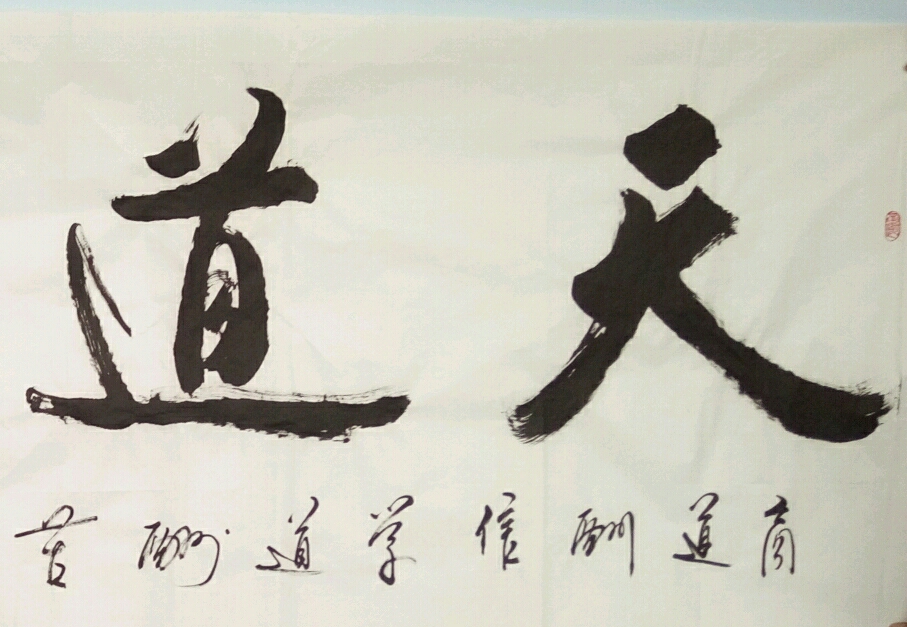 天道
商道酬信学道酬苦